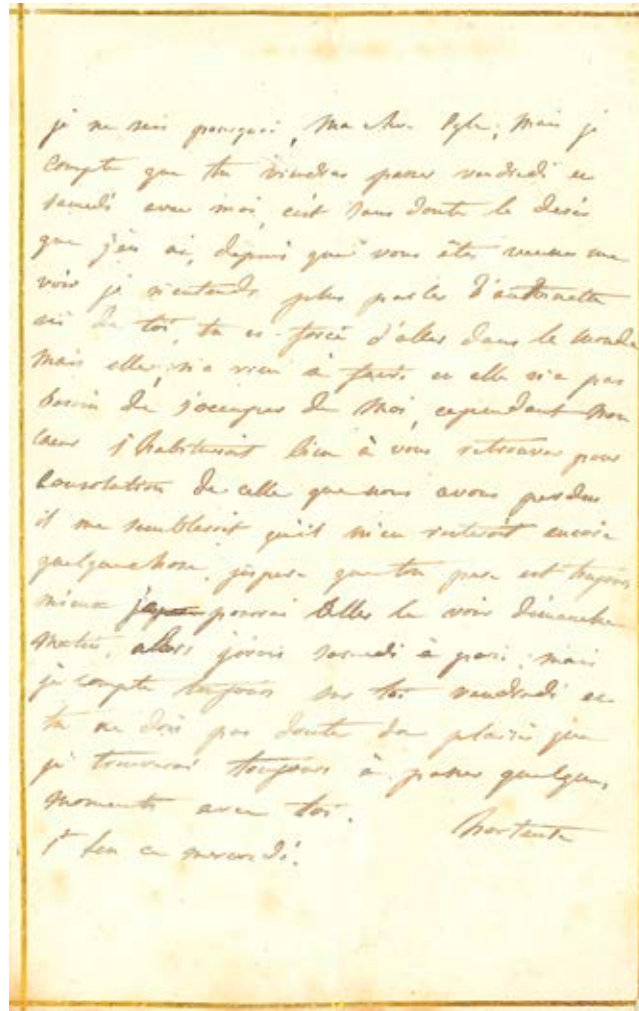 je ne sais pourquoi, ma chere Eglé, mais je
compte que tu viendras passer vendredi et
samedi avec moi, c'est sans doute le desir
que j'en ai, depuis que vous êtes venues me
voir je n'entends plus parler d'antoinette
ni de toi, tu es forcé d'aller dans le monde
mais elle, n'a rien à faire et elle n'a pas
besoin de s'occuper de moi, cependant mon
cœur s'habituroit bien à vous retrouver pour
consolation de celle que nous avons perdue
il me sembleroit qu'il m'en resteroit encore
quelquechose, j'espere que ton pere est toujours
mieux pourrai aller le voir dimanche
matin, alors j'irois samedi à paris, mais
je compte toujours sur toi vendredi et
tu ne dois pas douter du plaisir que
je trouverai toujours à passer quelques
moments avec toi.
hortense
st leu ce mercredi.